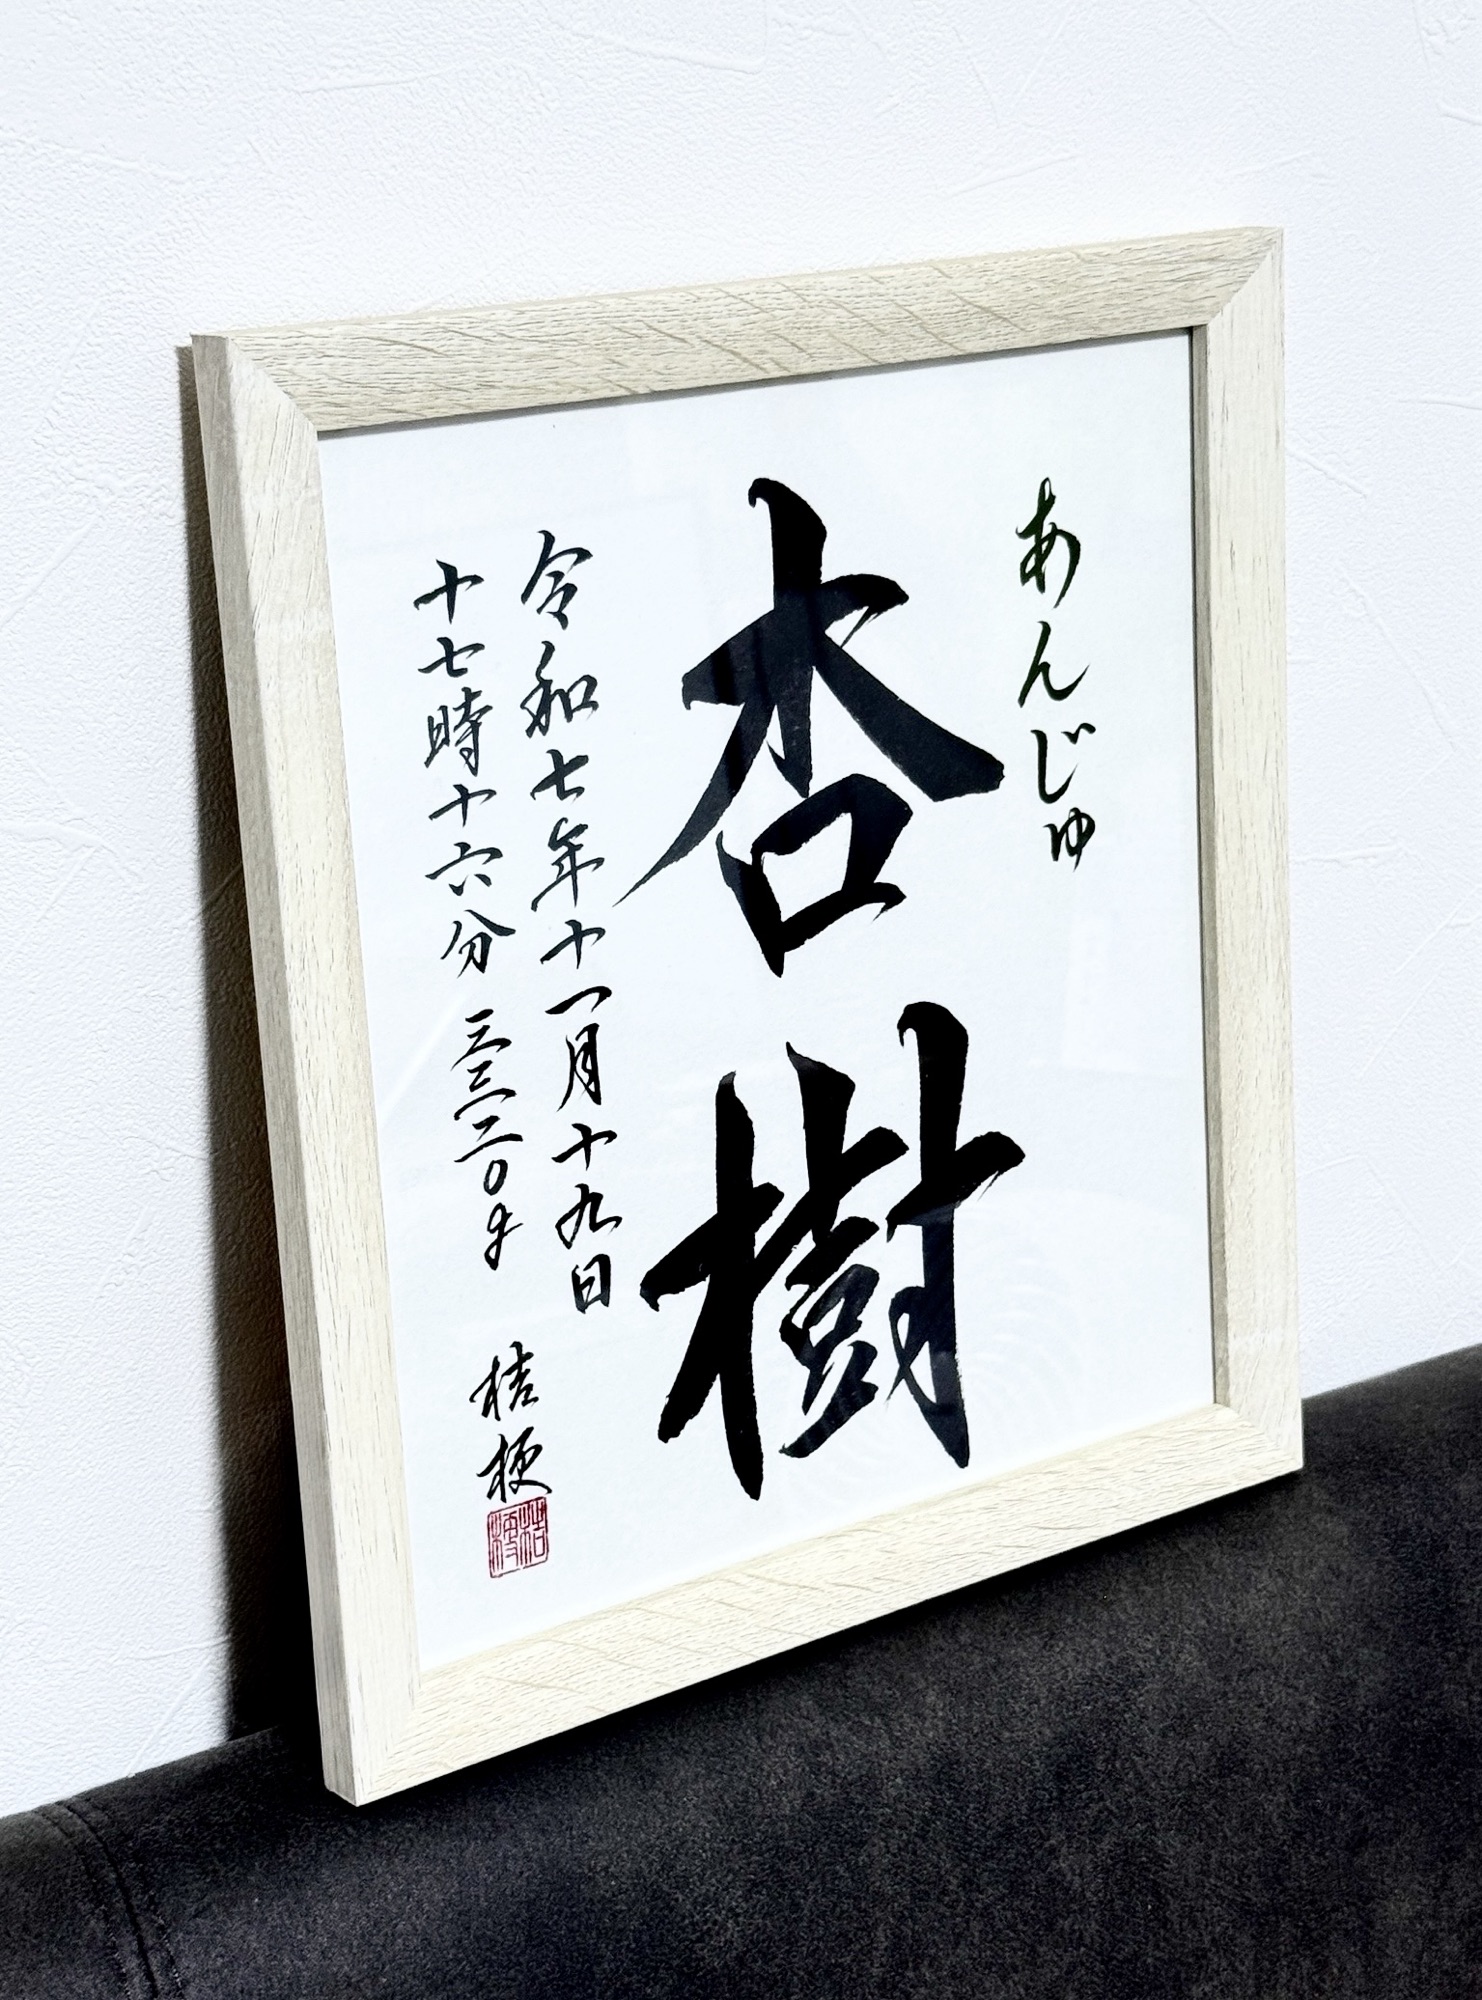 あんじゅ
杏樹
令和七年十一月十九日
十七時十六分 三三二〇g
桔梗
桔梗